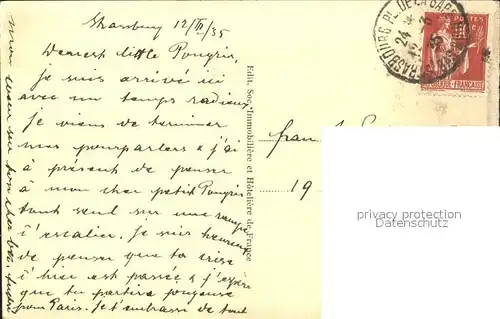 Strassburg 12/III/35
Dearest little Pougris,
je suis arrivé ici
avec un temps radieux
Je viens de terminer
mes pourparlers & j'ai
à présent de penser
à mon cher petit Pougris
tout seul sur une rampe
d'escalier. Je suis heureux
de penser que ta crise
d'hier est passée & j'espère
que tu partira joyeuse
pour Paris. Je t'embrasse de tout
mon cœur sur ton cher
Edit. Soc. Immobilière et Hôtelière de France
STRASBOURG PL. DE LA GARE
24
12 - 3
35
POSTES
REPUBLIQUE-FRANÇAISE
19
privacy protection
Datenschutz